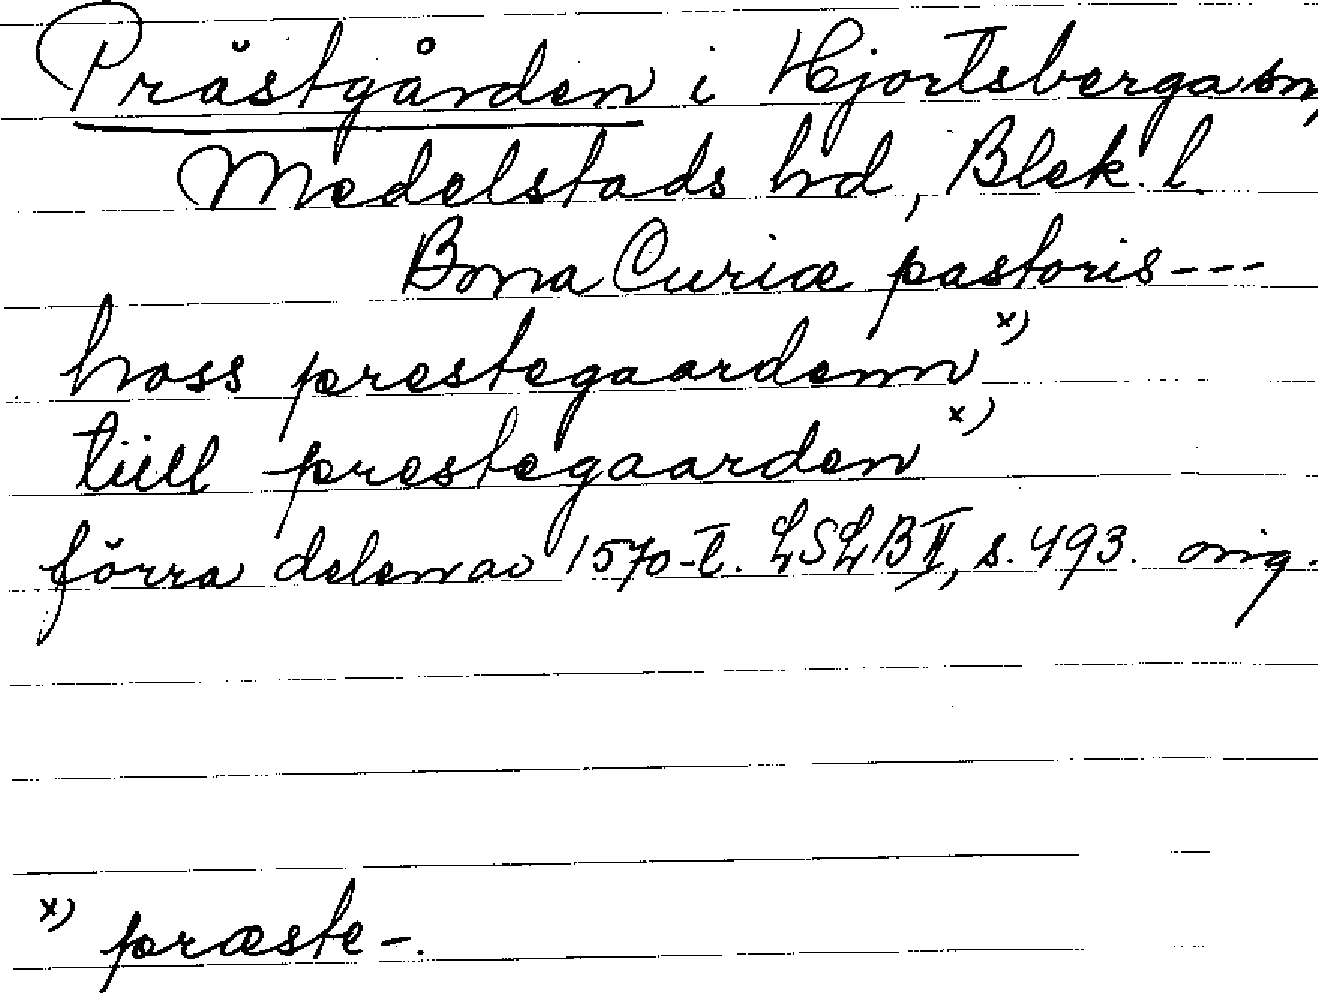 Prästgården i Hjortsberga sn,
Medelstads hd, Blek. l.
Bona Curiæ pastoris---
hoss prestegaardenn x)
tiill prestegaarden x)
förra delen av 1570-t. LSLB II, s. 493. orig.
x) præste-.